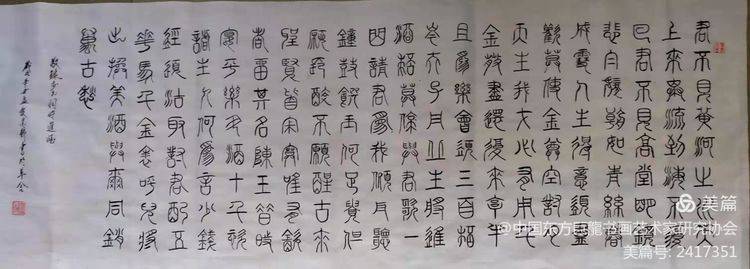 君不見黃河之水天
上來奔流到海不復
回君不見高堂明鏡
悲白髮朝如青絲暮
成雪人生得意須盡
歡莫使金樽空對月
天生我才必有用千
金散盡還復來
且為樂會須三百杯
岑夫子丹丘生將進
酒杯莫停與君歌一
曲請君為我傾耳聽
鐘鼓饌玉何足貴但
願長醉不願醒古來
聖賢皆寂寞唯有飲
者留其名陳王昔時
宴平樂斗酒十千恣
謔主人何為言少錢
徑須沽取對君酌五
花馬千金裘呼兒將
出換美酒與爾同銷
萬古愁
美篇
@中国东方巨龍书画艺术家研究协会
美篇号: 2417351